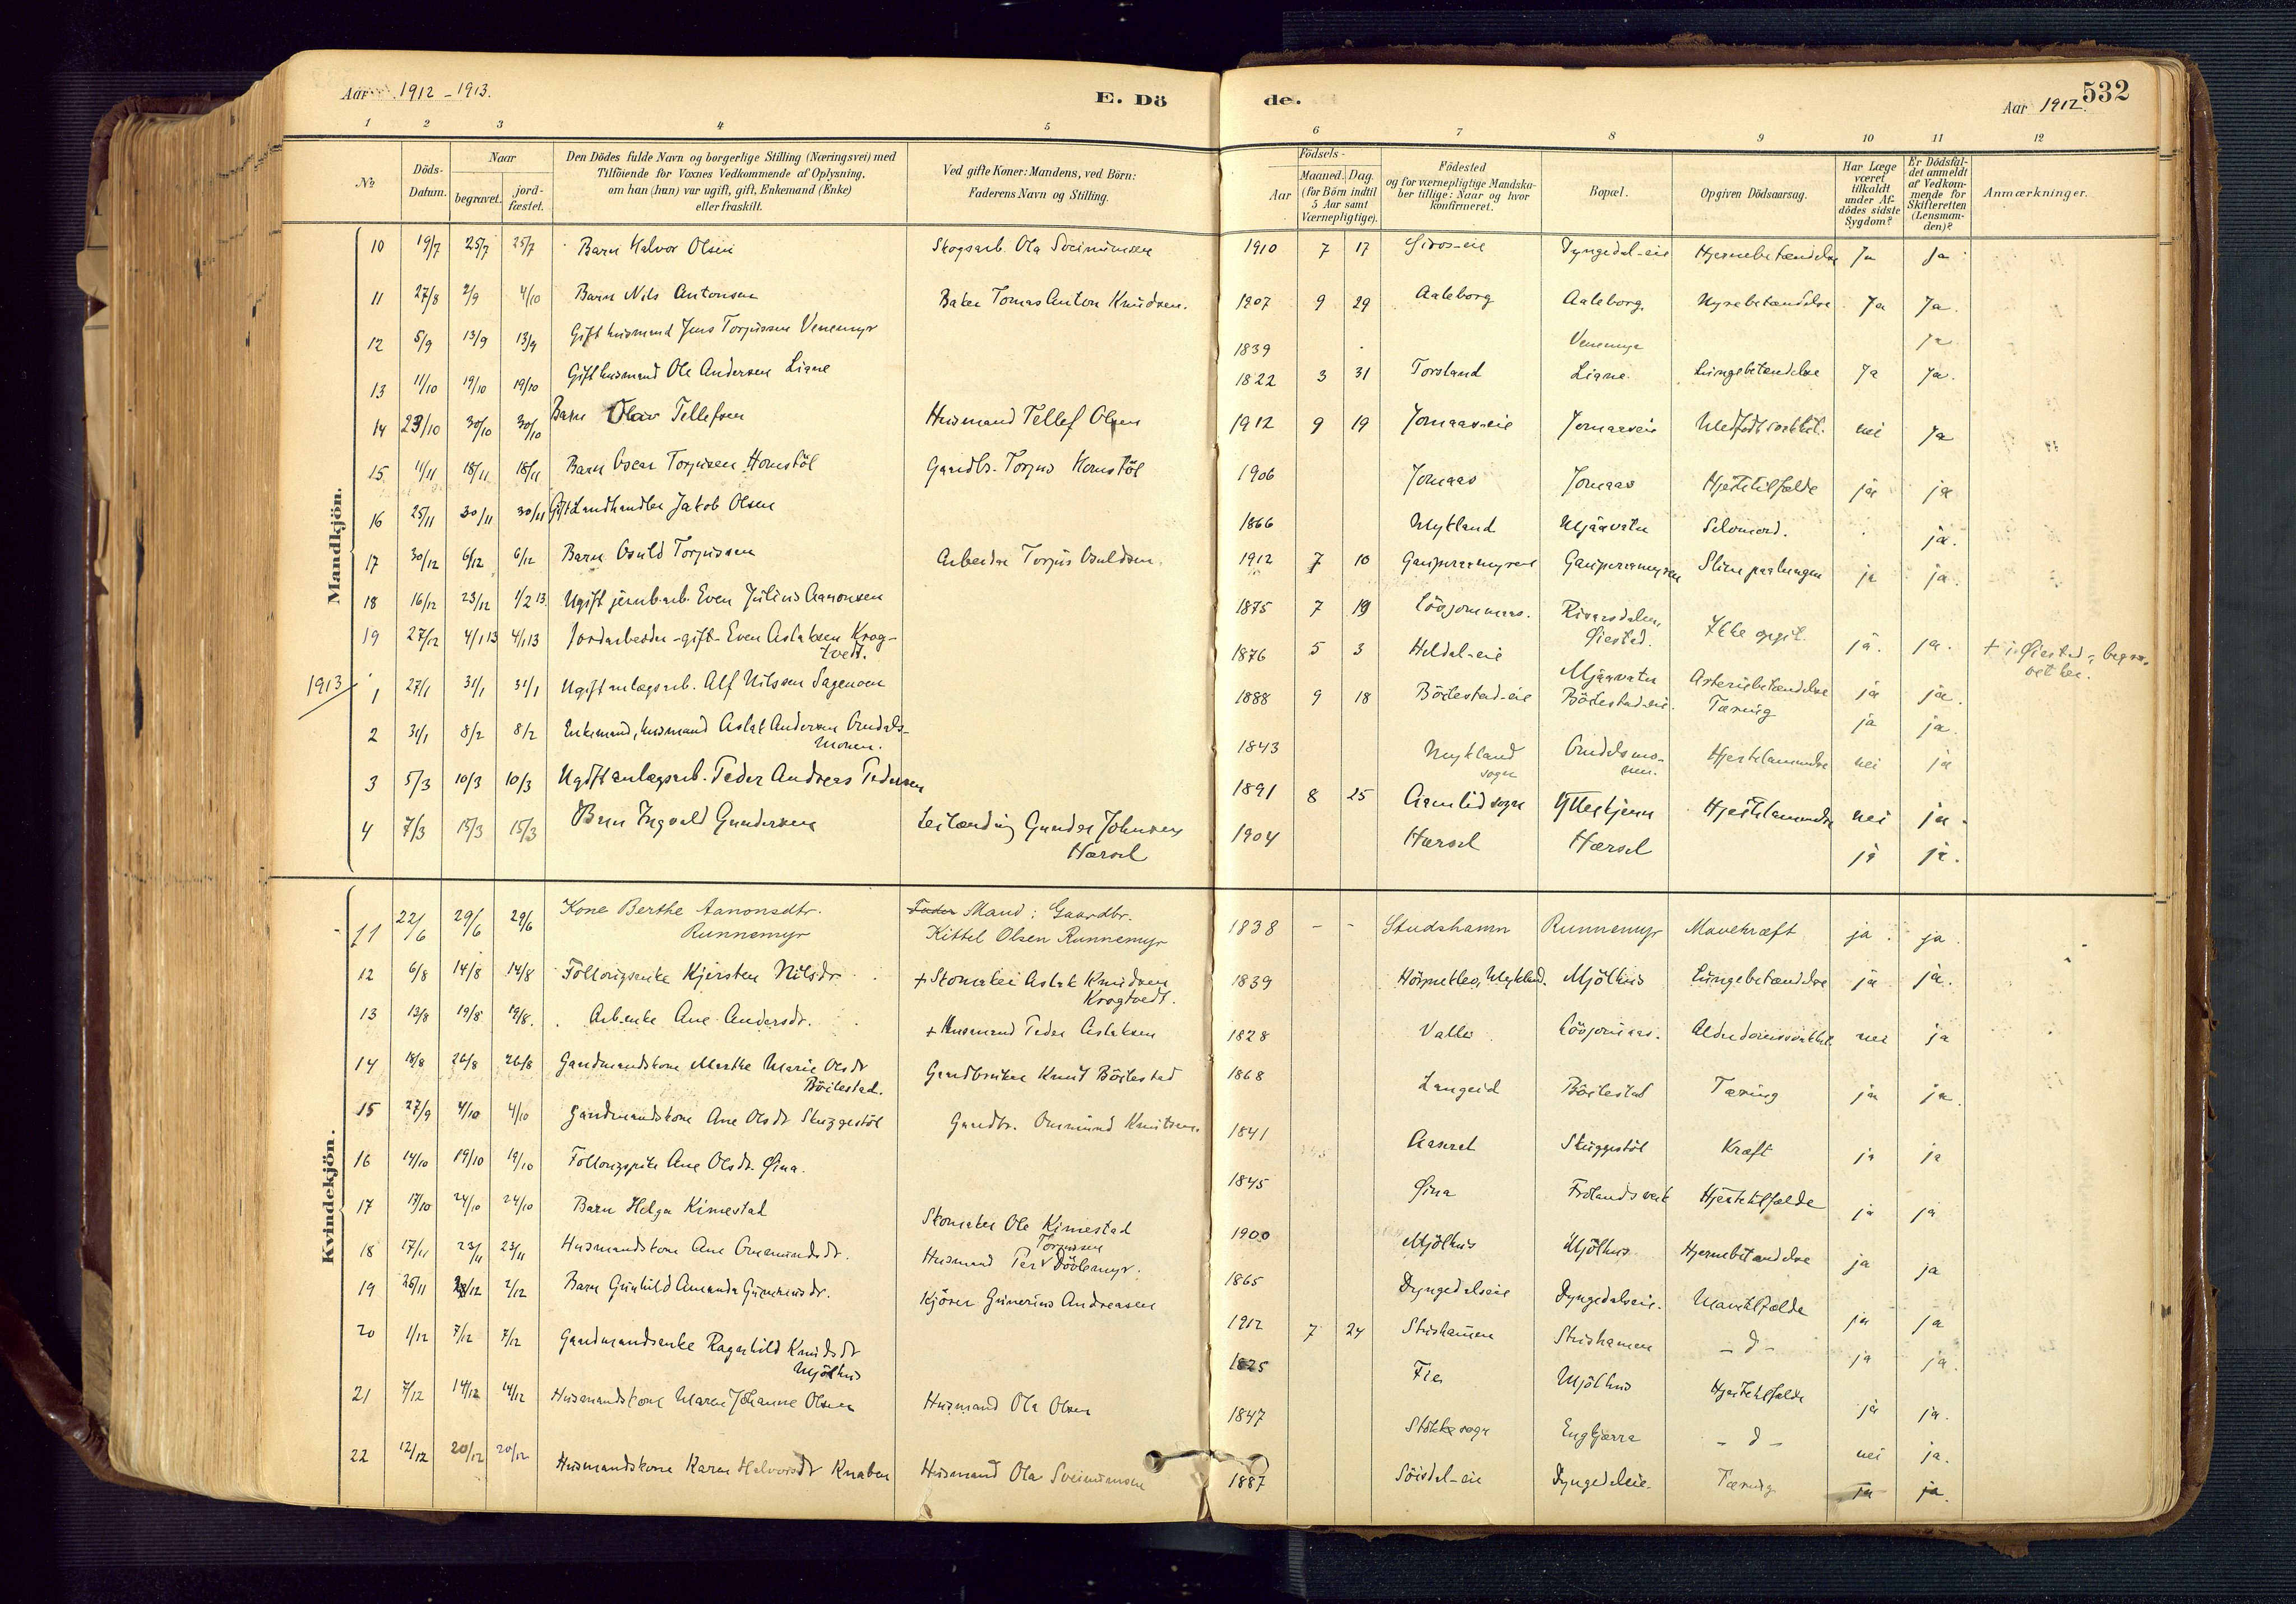 Aar 1912-1913.
E. Dö
de.
532
Aar 1912.
1 2 3 4 5 6 7 8 9 10 11 12
№
Döds-Datum.
Naar
begravet.
jord-fæstet.
Den Dödes fulde Navn og borgerlige Stilling (Næringsvei) med
Tilföiende for Voxnes Vedkommende af Oplysning,
om han (hun) var ugift, gift, Enkemand (Enke)
eller fraskilt.
Ved gifte Koner: Mandens, ved Börn:
Faderens Navn og Stilling.
Födsels-
Aar
Maaned. Dag.
(for Börn indtil
5 Aar samt
Værnepligtige).
Födested
og for værnepligtige Mandska-
ber tillige: Naar og hvor
konfirmeret.
Bopæl.
Opgiven Dödsaarsag.
Har Læge
været
tilkaldt
under Af-
dödes sidste
Sygdom?
Er Dödsfal-
det anmeldt
af Vedkom-
mende for
Skifteretten
(Lensman-
den)?
Anmærkninger.
Mandkjön.
10 19/7 25/7 25/7 Barn Halvor Olsen Skogsarb. Ola Sveinunsen 1910 7 17 Dyngedal-eie Hjernebetændelse Ja Ja
11 27/8 2/9 4/10 Barn Nils Antonsen Baker Tomas Anton Knudsen. 1907 9 29 Aaleborg Aaleborg Nyrebetændelse Ja Ja.
12 5/9 13/9 13/9 Gift husmand Jens Torjussen Venemyr 1839 Venemyr ja
13 11/10 19/10 19/10 Gift husmand Ole Andersen Liane 1822 3 31 Torsland Liane Lungebetendelse Ja Ja.
14 23/10 30/10 30/10 Barn Olav Tellefsen Husmand Tellef Olsen 1912 9 19 Jomaas-eie Jomaaseie Medfödt svakhet. nei Ja
15 11/11 18/11 18/11 Barn Oscar Torjusen Homstöl Gaardbr. Torjus Homstöl 1906 Jomaas Jomaas Hjertetilfælde ja ja
16 25/11 30/11 30/11 Gift Landhandler Jakob Olsen 1866 Mykland Mjaavatn Selvmord. ja.
17 30/12 6/12 6/12 Barn Osuld Torjussen Arbeider Torjus Osuldsen. 1912 7 10 Slim paa lungen ja ja.
18 16/12 23/12 1/2 13 Ugift jernb.arb. Even Julius Aanonsen 1875 7 19 Lövjomaas. Rivarsdalen, Øiestad. Ikke opgit. ja. ja. + i Øiestad, begra-
vet her.
19 27/12 4/1 13 4/1 13 Jordarbeider -gift- Even Aslaksen Krog-
tvedt. 1876 5 3 Heldal-eie Mjaavatn Asteriebetændelse ja ja.
1913
1 27/1 31/1 31/1 Ugift anlægsarb. Alf Nilssen Sagemoen 1888 9 18 Böilestad-eie Böilestad-eie. Tæring ja ja.
2 31/1 8/2 8/2 Enkemand, husmand Aslak Andersen Omdals-
monen. 1843 Mykland
sogn Omdalsmo-
nen. Hjertelammelse nei ja
3 5/3 10/3 10/3 Ugift anlægsarb. Peder Andreas Pedersen 1891 8 25 Aamlid sogn Ytterkjenn Hjertelammelse nei ja.
4 7/3 15/3 15/3 Barn Ingvald Gundersen Leilænding Gunder Johnsen
Hærsel 1904 Hærsel Hærsel ja ja.
Kvindekjön.
11 22/6 29/6 29/6 Kone Berthe Aanonsdtr.
Runnemyr Fader Mand: Gaardbr.
Kittel Olsen Runnemyr 1838 - - Studshamn Runnemyr Mavekræft ja. ja.
12 6/8 14/8 14/8 Föllorugsenke Kjersten Nilsdr. + Skomaker Aslak Knudsen
Krogtvedt. 1839 Mykland. Mjölhus Lungebetændelse ja ja.
13 13/8 19/8 19/8. Arb.enke Ane Andersdr. + Husmand Peder Aslaksen 1828 Valle Lövjomaas. Alderdomssvakhet nei ja
14 18/8 26/8 26/8 Gaardmandskone Marthe Marie Olsdr
Böilestad. Gaardbruker Knut Böilestad 1868 Langeid Böilestad Tæring ja ja.
15 27/9 4/10 4/10 Gaardmandskone Ane Olsdr Skuggestöl Gaardbr. Ommund Knutsen. 1841 Aasret Skuggestöl Kræft ja ja
16 14/10 19/10 19/10 Föllorugspike Ane Olsdr. Øina. 1845 Øina Frolandsverk Hjertetilfælde ja ja
17 17/10 24/10 24/10 Barn Helga Kimestad Skomaker Ole Kimestad 1900 Mjölhus Mjölhus Hjernebetændelse ja ja
18 17/11 23/11 23/11 Husmandskone Ane Ommundsdr. Torjussen
Husmand Per Döölemyr. 1865 Dyngedalseie Dyngedalseie. Mavetilfælde ja ja
19 26/11 2/12 2/12 Barn Gunhild Amanda Gunneriusdr. Kjörer Gunerius Andreasen 1912 7 24 Strishamen Strishamen - d - ja ja.
20 1/12 7/12 7/12 Gaardmandsenke Ragnhild Knudsdr
Mjölhus 1825 Fie Mjölhus Hjertetilfælde ja ja.
21 7/12 14/12 14/12 Husmandskone Maren Johanne Olsen Husmand Ola Olsen 1847 Stokke sogn Engkjærra - d - nei ja.
22 12/12 20/12 20/12 Husmandskone Karen Halvorsdr Knaben Husmand Ola Sveinunsen 1887 Söisdal-eie Dyngedaleie. Tæring ja ja.